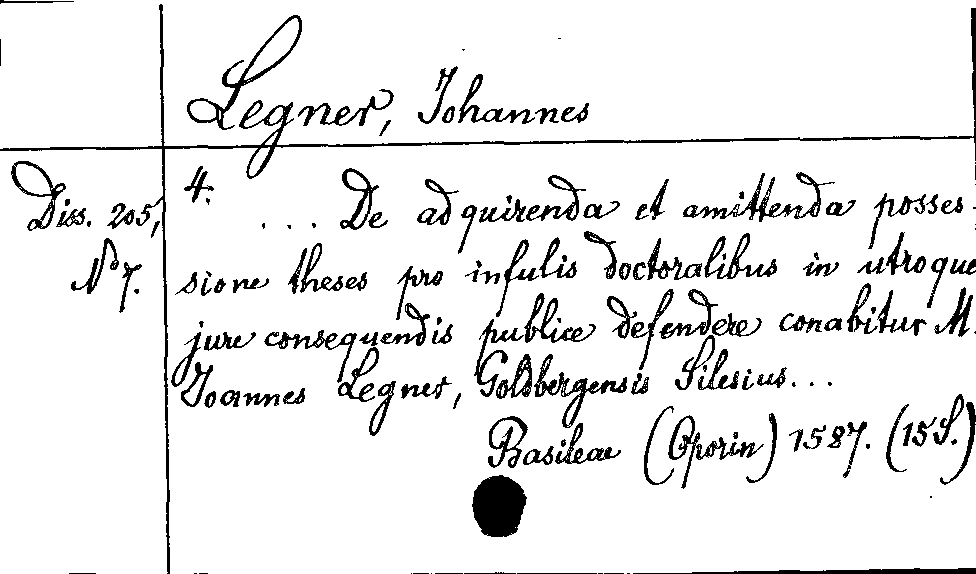 Legner, Johannes
Diss. 205,
No 7.
4.
... De adquirenda et amittenda posses-
sione theses pro infulis doctoralibus in utroque
jure consequendis publice defendere conabitur M.
Joannes Legner, Goldbergensis Silesius...
Basileae (Oporin) 1587. (15 S.)